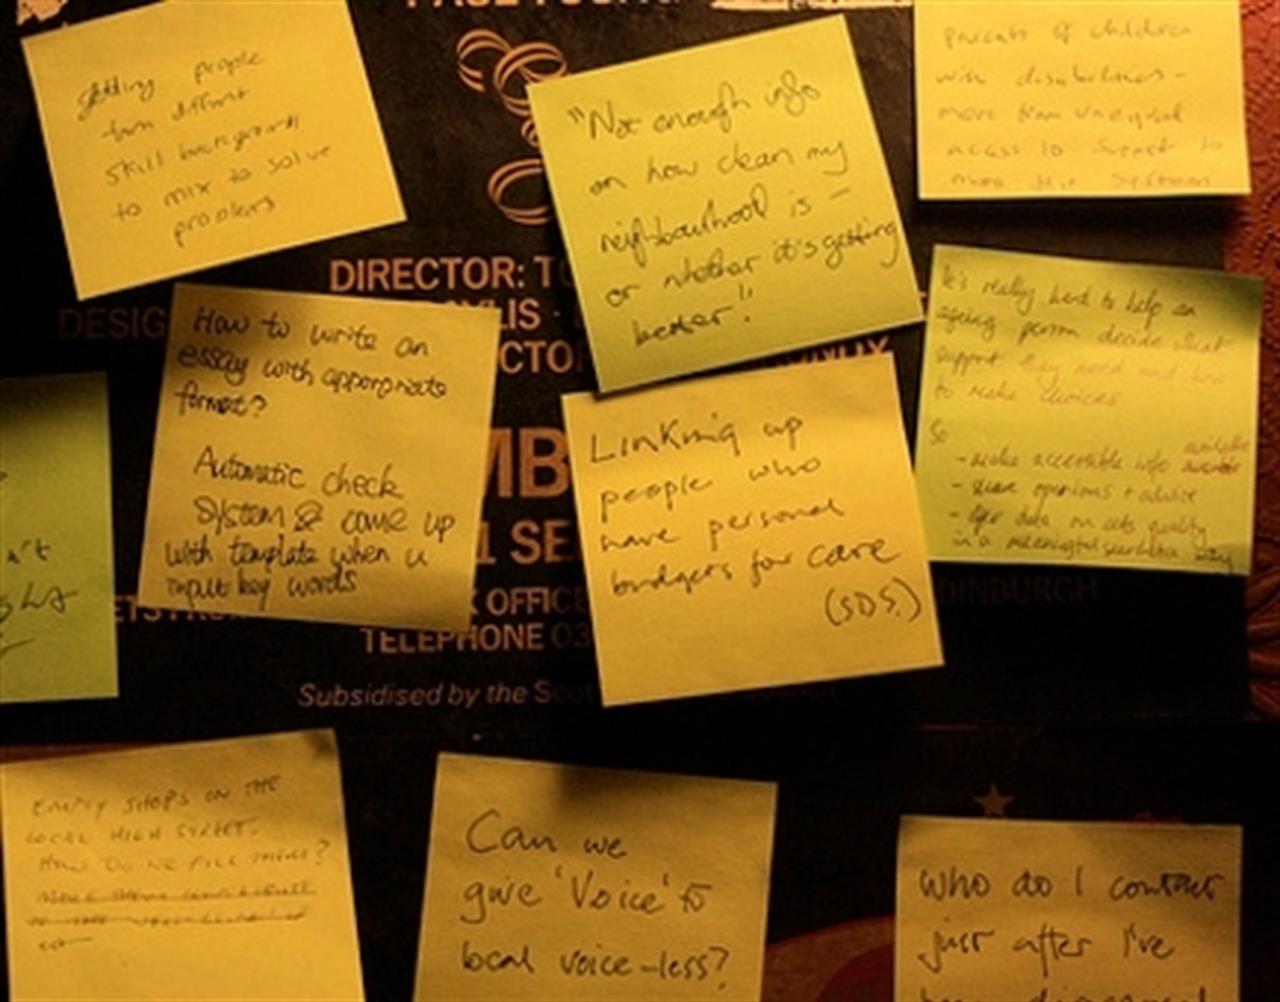 getting people
from diffrent
skill backgrounds
to mix to solve
problems
"Not enough info
on how clean my
neighbourhood is -
or whether it's getting
better".
parents of children
with disabilities -
more than unequal
access to support to
DIRECTOR: TO
DESIG
LIS
CTO
MB
1 SE
OFFICE
TELEPHONE 03
Subsidised by the Scot
DINBURGH
How to write an
essay with appropriate
format?
Automatic check
System & come up
with template when u
input key words
Linking up
people who
have personal
budgets for care
(SDS.)
It's really hard to help an
ageing person decide what
support they need and how
to make choices
So
- make accessible info available
- share opinions + advice
- offer data on quality
in a meaningful searchable way
EMPTY SHOPS ON THE
LOCAL HIGH STREET.
HOW DO WE FILL THEM?
Can we
give 'Voice' to
local voice-less?
Who do I contact
just after I've
been diagnosed